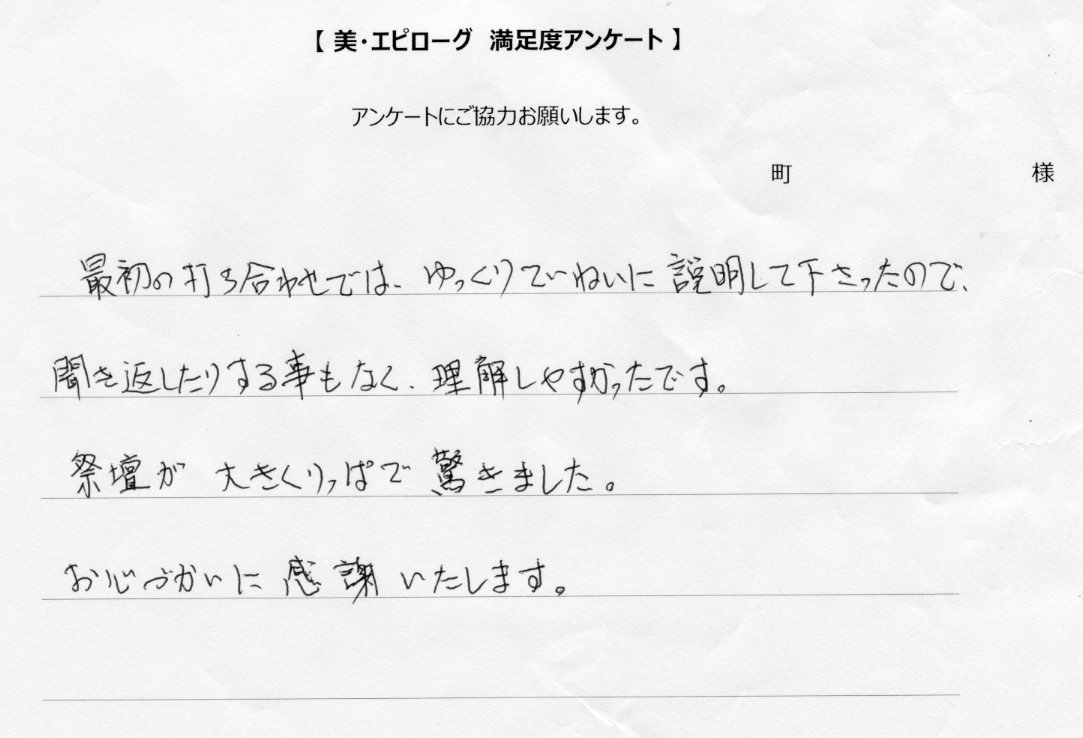 【 美・エピローグ 満足度アンケート 】
アンケートにご協力お願いします。
町 様
最初の打ち合わせでは、ゆっくりていねいに説明して下さったので、
聞き返したりする事もなく、理解しやすかったです。
祭壇が 大きくりっぱで 驚きました。
お心づかいに 感謝 いたします。